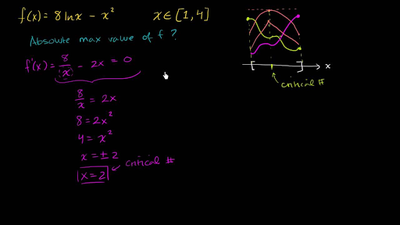 f(x) = 8 lnx − x² x ∈ [1, 4]
Absolute max value of f ?
f'(x) = 8/x − 2x = 0
8/x = 2x
8 = 2x²
4 = x²
x = ± 2
x = 2 critical #
[ ] x
critical #